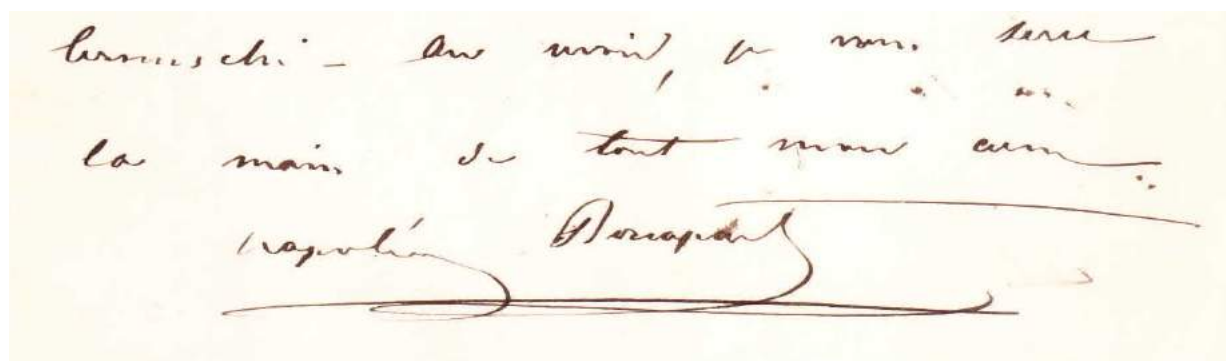 Cernuschi – Au revoir, je vous serre
la main de tout mon cœur
Napoléon Bonaparte